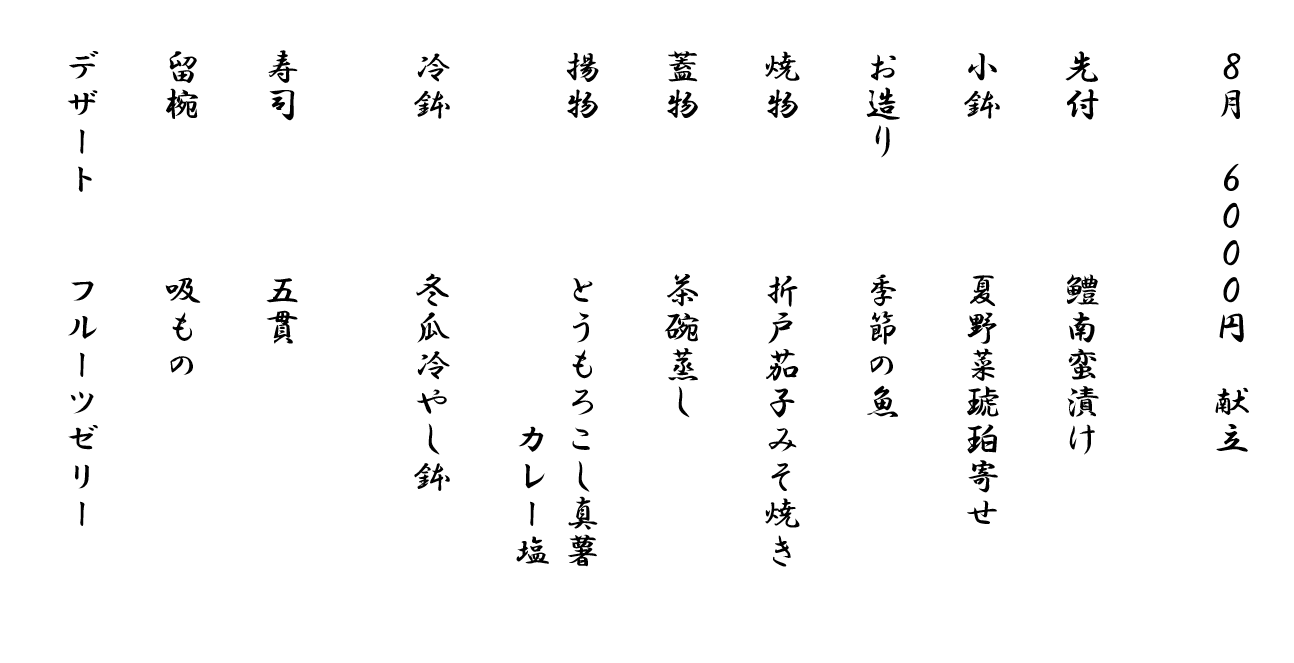 8月　6000円　献立
先付　鱧南蛮漬け
小鉢　夏野菜琥珀寄せ
お造り　季節の魚
焼物　折戸茄子みそ焼き
蓋物　茶碗蒸し
揚物　とうもろこし真薯
カレー塩
冷鉢　冬瓜冷やし鉢
寿司　五貫
留椀　吸もの
デザート　フルーツゼリー